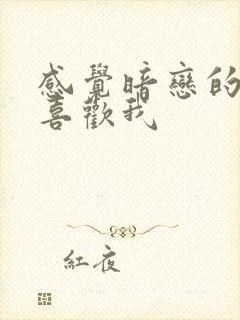 感覺暗戀的
喜歡我
紅夜